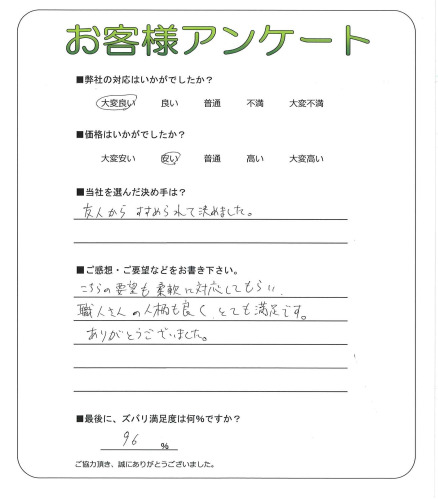 お客様アンケート
■弊社の対応はいかがでしたか？
大変良い 良い 普通 不満 大変不満
■価格はいかがでしたか？
大変安い 安い 普通 高い 大変高い
■当社を選んだ決め手は？
友人からすすめられて決めました。
■ご感想・ご要望などをお書き下さい。
こちらの要望も柔軟に対応してもらい、
職人さんの人柄も良く、とても満足です。
ありがとうございました。
■最後に、ズバリ満足度は何％ですか？
96 ％
ご協力頂き、誠にありがとうございました。